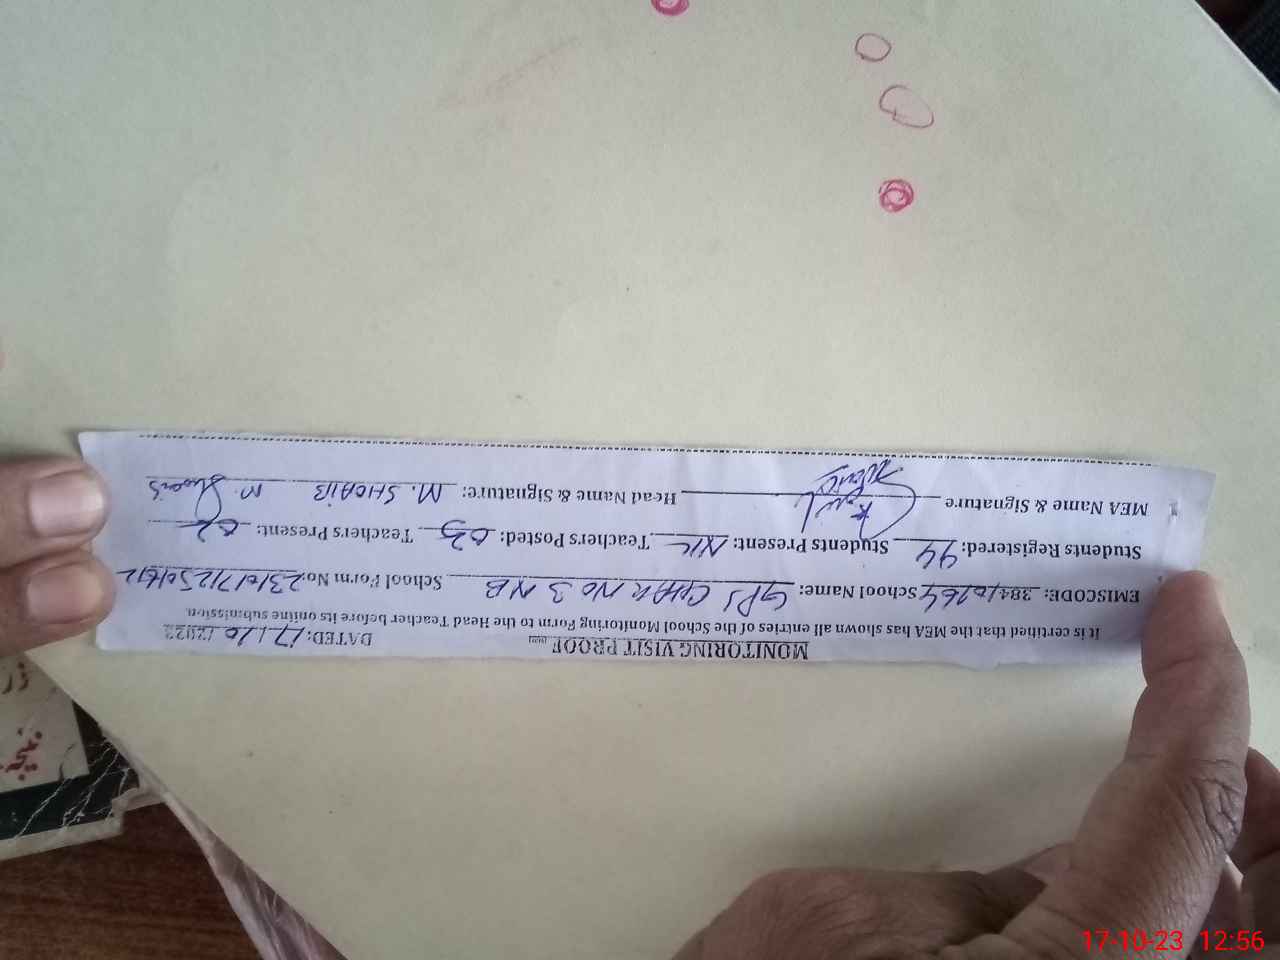 MONITORING VISIT PROOF DATED: 17/10/2023
It is certified that the MEA has shown all entries of the School Monitoring Form to the Head Teacher before its online submission.
EMISCODE: 38410264 School Name: GPS CHAK NO 3 NB School Form No:
Students Registered: 44 Students Present: NIL Teachers Posted: 03 Teachers Present: 02
MEA Name & Signature Head Name & Signature: M. SHOAIB M. Shoaib
17-10-23 12:56